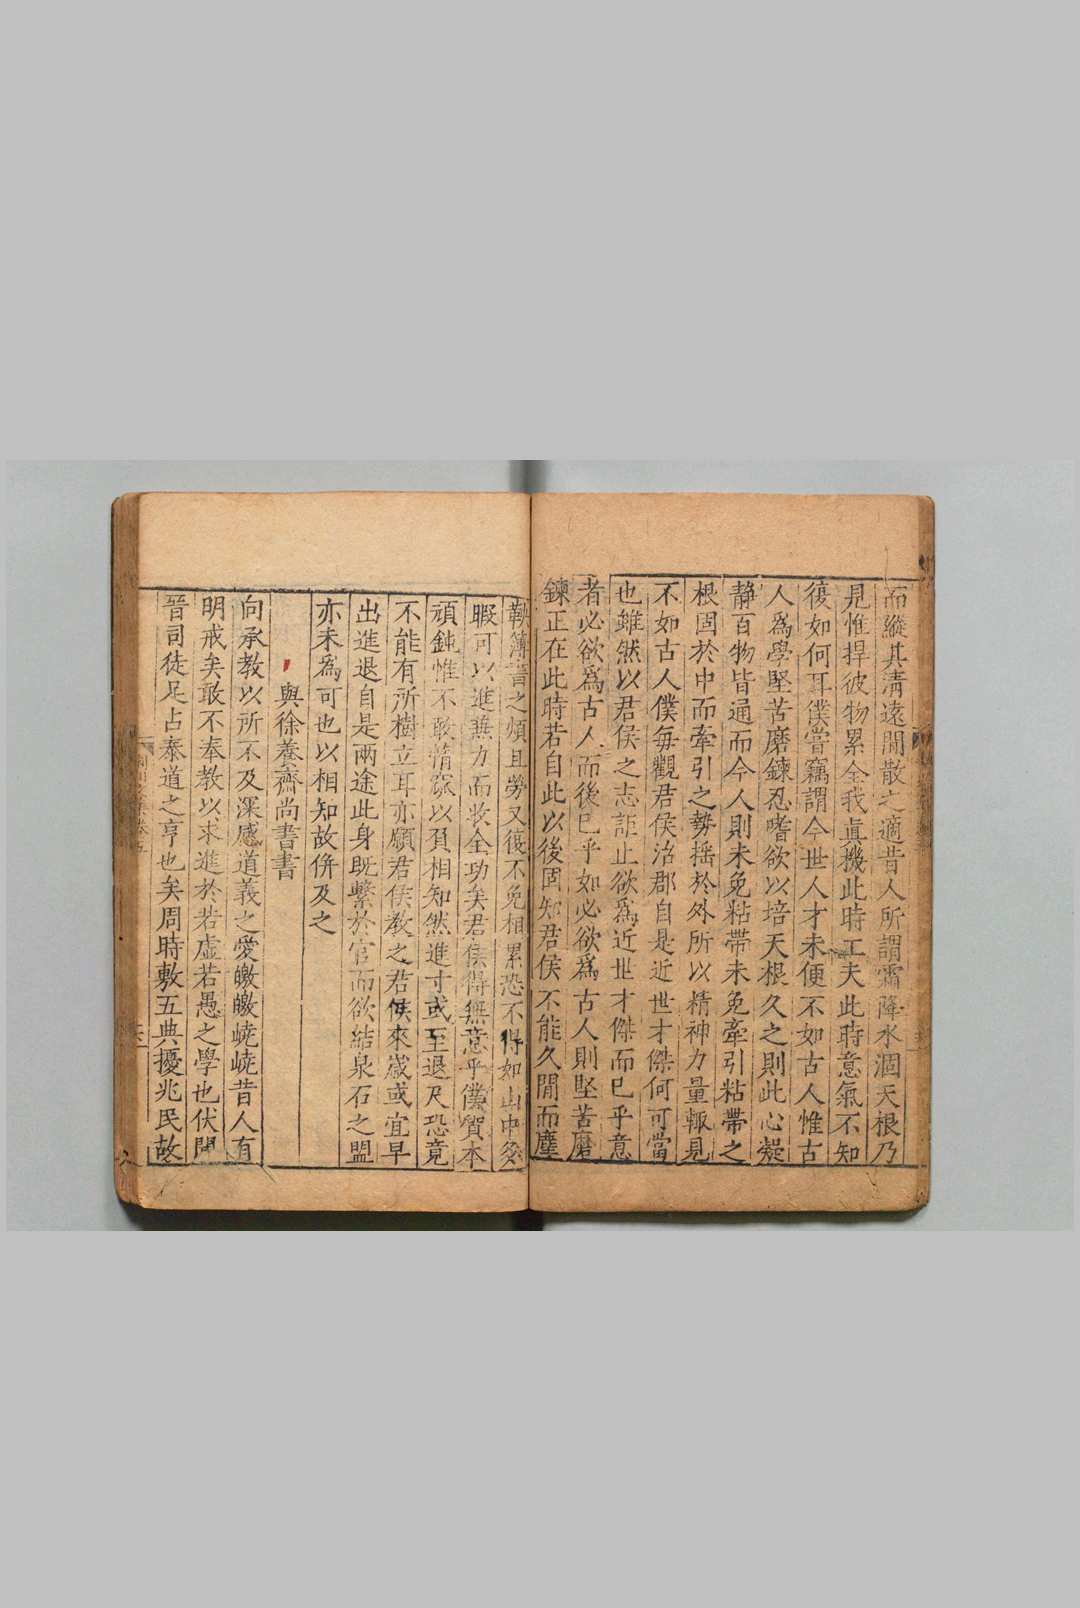 而縱其清遠閒散之適昔人所謂霜降水涸天根乃
見惟捍彼物累全我真機此時工夫此時意氣不知
復如何耳僕嘗竊謂今世人才未便不如古人惟古
人為學堅苦磨鍊忍嗜欲以培天根久之則此心凝
靜百物皆通而今人則未免粘帶未免牽引粘帶之
根固於中而牽引之勢搖於外所以精神力量輒見
不如古人僕每觀君侯治郡自是近世才傑何可當
也雖然以君侯之志詎止欲為近世才傑而已乎意
者必欲為古人而後已乎如必欲為古人則堅苦磨
鍊正在此時若自此以後固知君侯不能久閒而塵
鞅簿書之煩且勞又復不免相累恐不得如山中矣
暇可以進無力而收全功矣君侯得無意乎僕質本
頑鈍惟不敢惰窳以負相知然進寸或至退尺恐竟
不能有所樹立耳亦願君侯教之君侯來歲或宜早
出進退自是兩途此身既繫於官而欲結泉石之盟
亦未為可也以相知故併及之
與徐養齋尚書書
向承教以所不及深感道義之愛皦皦嶢嶢昔人有
明戒矣敢不奉教以求進於若虛若愚之學也伏聞
晉司徒足占泰道之亨也矣周時敷五典擾兆民故